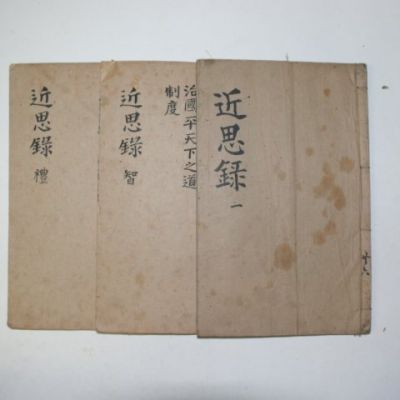 近思錄 一
十六
治國平天下之道
制度
近思錄 智
近思錄 禮